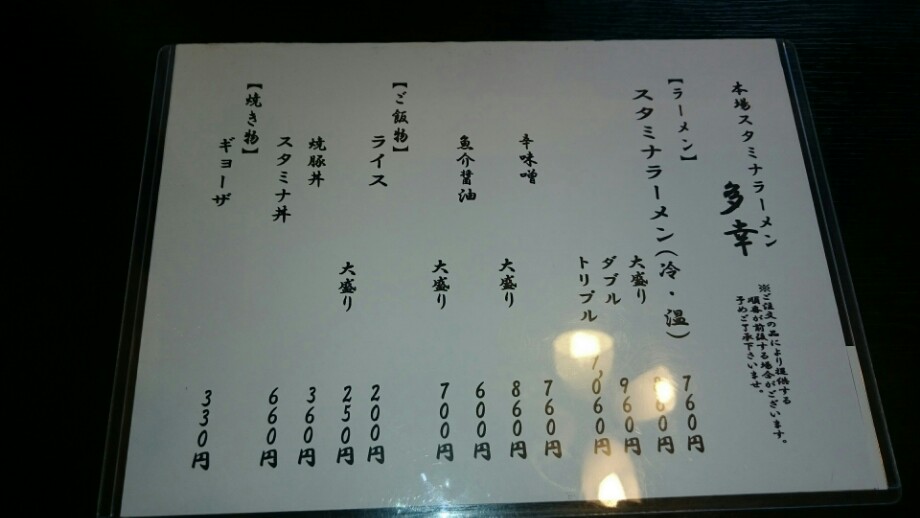 本場スタミナラーメン
多幸
※ご注文の品により提供する
順番が前後する場合がございます。
予めご了承下さいませ。
【ラーメン】
スタミナラーメン(冷・温) 760円
大盛り 860円
ダブル 960円
トリプル 1,060円
辛味噌 760円
大盛り 860円
魚介醤油 600円
大盛り 700円
【ご飯物】
ライス 200円
大盛り 250円
焼豚丼 360円
スタミナ丼 660円
【焼き物】
ギョーザ 330円